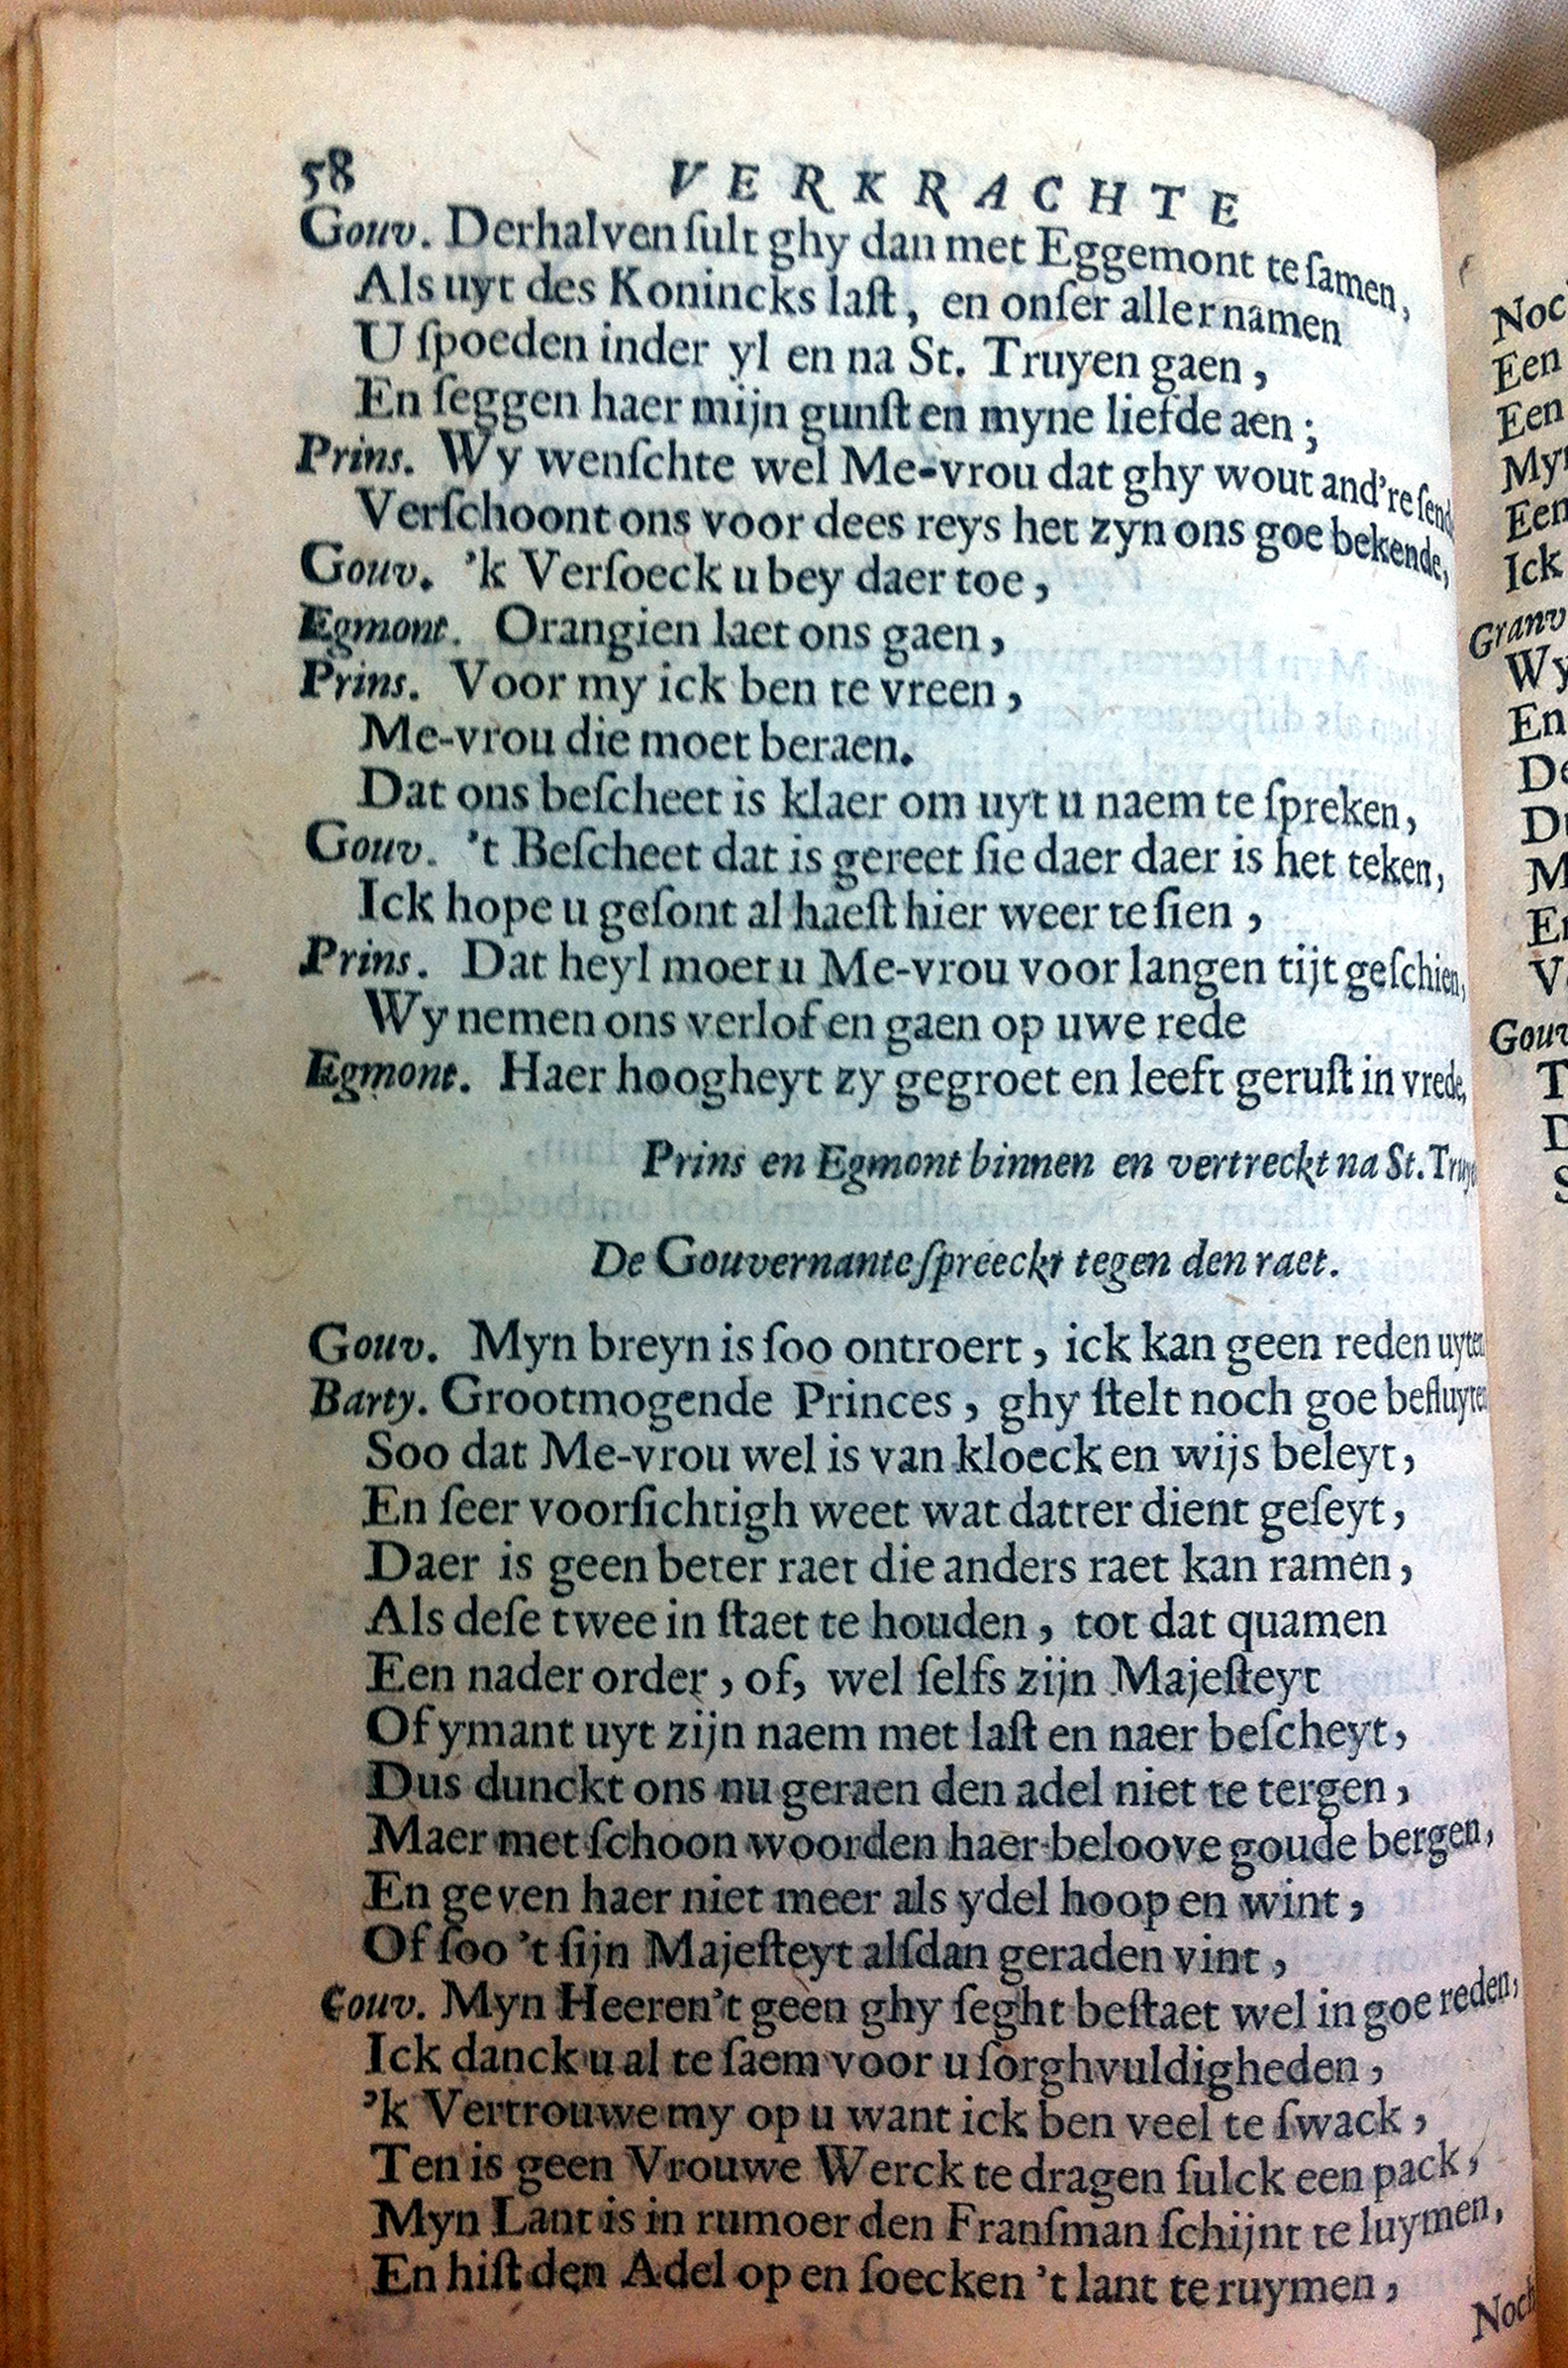 58 VERKRACHTE
Gouv. Derhalven ſult ghy dan met Eggemont te ſamen,
Als uyt des Konincks laſt, en onſer aller namen
U ſpoeden inder yl en na St. Truyen gaen,
En ſeggen haer mijn gunſt en myne liefde aen;
Prins. Wy wenſchte wel Me-vrou dat ghy wout and're
Verſchoont ons voor dees reys het zyn ons goe bekende,
Gouv. 'k Verſoeck u bey daer toe,
Egmont. Orangien laet ons gaen,
Prins. Voor my ick ben te vreen,
Me-vrou die moet beraen.
Dat ons beſcheet is klaer om uyt u naem te ſpreken,
Gouv. 't Beſcheet dat is gereet ſie daer daer is het teken,
Ick hope u geſont al haeſt hier weer te ſien,
Prins. Dat heyl moet u Me-vrou voor langen tijt geſchien,
Wy nemen ons verlof en gaen op uwe rede
Egmont. Haer hoogheyt zy gegroet en leeft geruſt in vrede,
Prins en Egmont binnen en vertreckt na St.
De Gouvernante ſpreeckt tegen den raet.
Gouv. Myn breyn is ſoo ontroert, ick kan geen reden uyten
Barty. Grootmogende Princes, ghy ſtelt noch goe beſluyten
Soo dat Me-vrou wel is van kloeck en wijs beleyt,
En ſeer voorſichtigh weet wat datter dient geſeyt,
Daer is geen beter raet die anders raet kan ramen,
Als deſe twee in ſtaet te houden, tot dat quamen
Een nader order, of, wel ſelfs zijn Majeſteyt
Of ymant uyt zijn naem met laſt en naer beſcheyt,
Dus dunckt ons nu geraen den adel niet te tergen,
Maer met ſchoon woorden haer beloove goude bergen,
En geven haer niet meer als ydel hoop en wint,
Of ſoo 't ſijn Majeſteyt alſdan geraden vint,
Gouv. Myn Heeren 't geen ghy ſeght beſtaet wel in goe reden,
Ick danck u al te ſaem voor u ſorghvuldigheden,
'k Vertrouwe my op u want ick ben veel te ſwack,
Ten is geen Vrouwe Werck te dragen ſulck een pack,
Myn Lant is in rumoer den Franſman ſchijnt te luymen,
En hiſt den Adel op en ſoecken 't lant te ruymen,
Een
Een
Ick
Wy
En